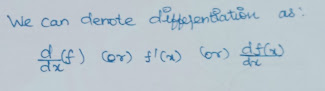 We can denote differentiation as:
d/dx (f) (or) f'(x) (or) df(x)/dx